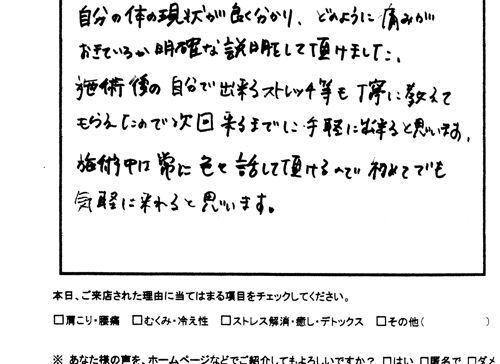 自分の体の現状が良く分かり、どのように痛みが
おきているか明確な説明をして頂けました。
施術後の自分で出来るストレッチ等も丁寧に教えて
もらえたので次回来るまでに手軽に出来ると思います。
施術中は常に色々話して頂けるので初めてでも
気軽に来れると思います。
本日、ご来店された理由に当てはまる項目をチェックしてください。
□肩こり・腰痛 □むくみ・冷え性 □ストレス解消・癒し・デトックス □その他( )
※ あなた様の声を、ホームページなどでご紹介してもよろしいですか？ □はい □匿名で □ダメ